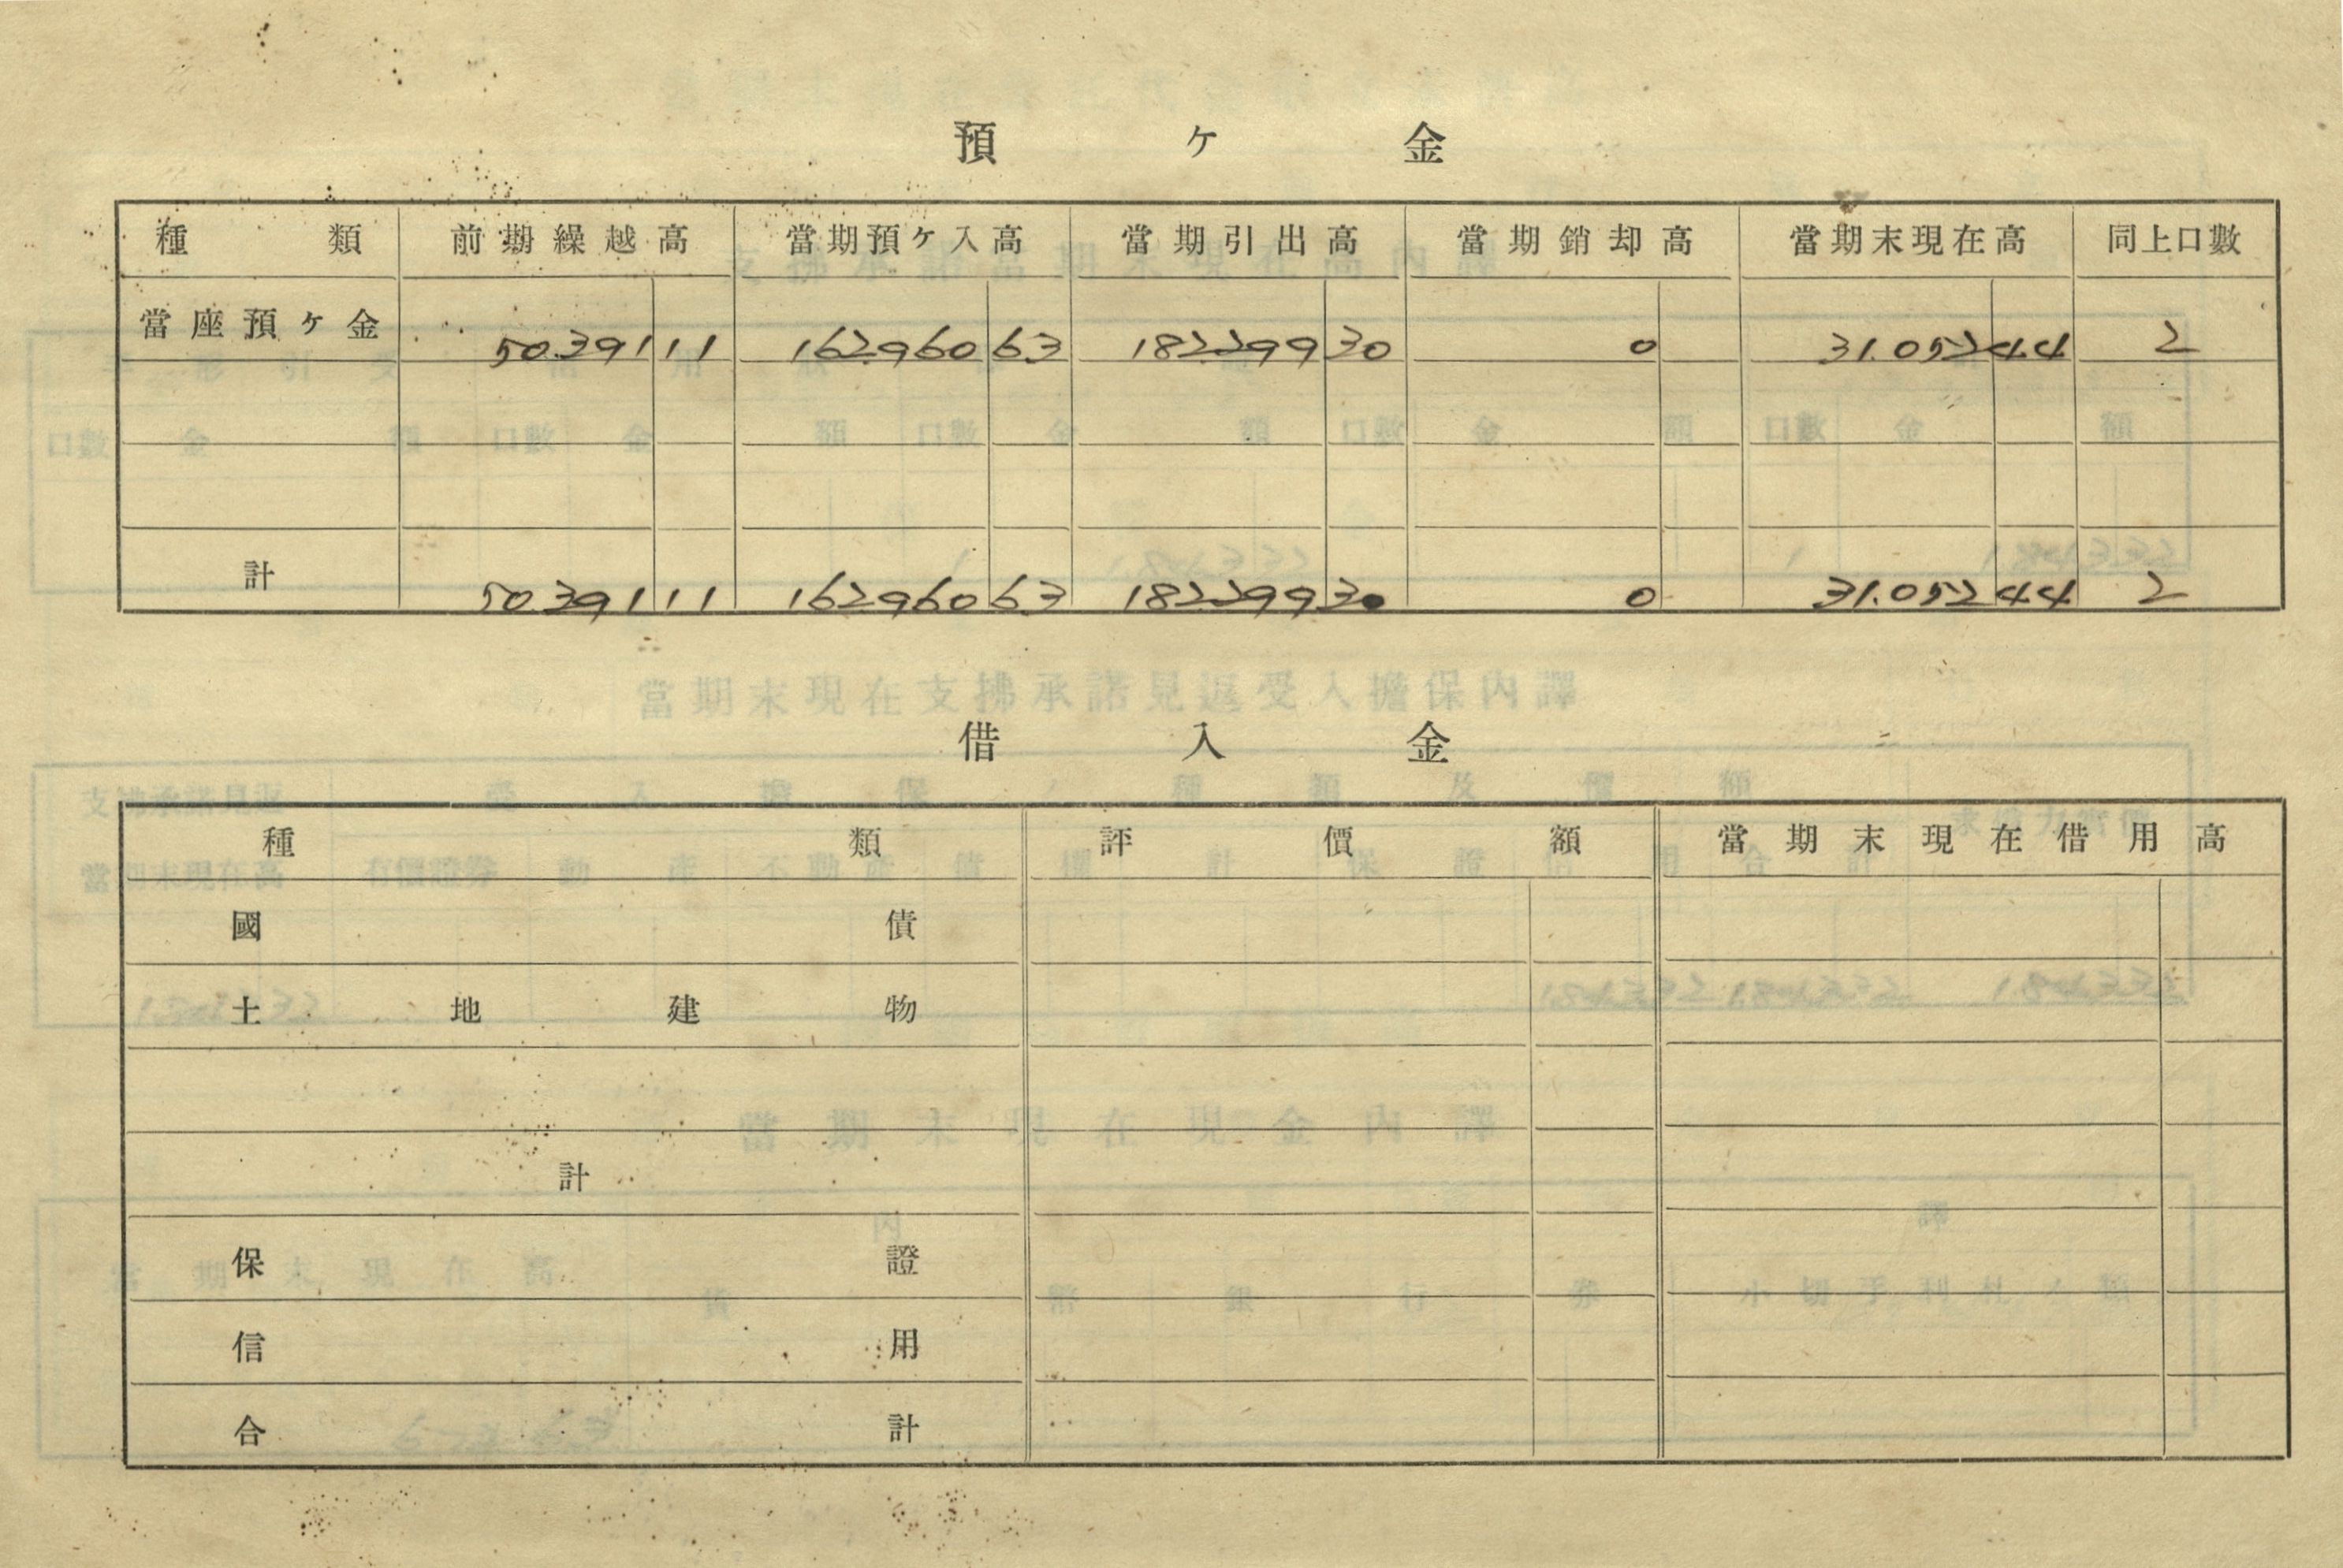 預ケ金
種類 前期繰越高 當期預ケ入高 當期引出高 當期銷却高 當期末現在高 同上口數
當座預ケ金 50391 11 162960 63 182299 30 0 31.052 44 2
計 50391 11 162960 63 182299 30 0 31.052 44 2
借入金
種類 評價額 當期末現在借用高
國債
土地建物
計
保證
信用
合計